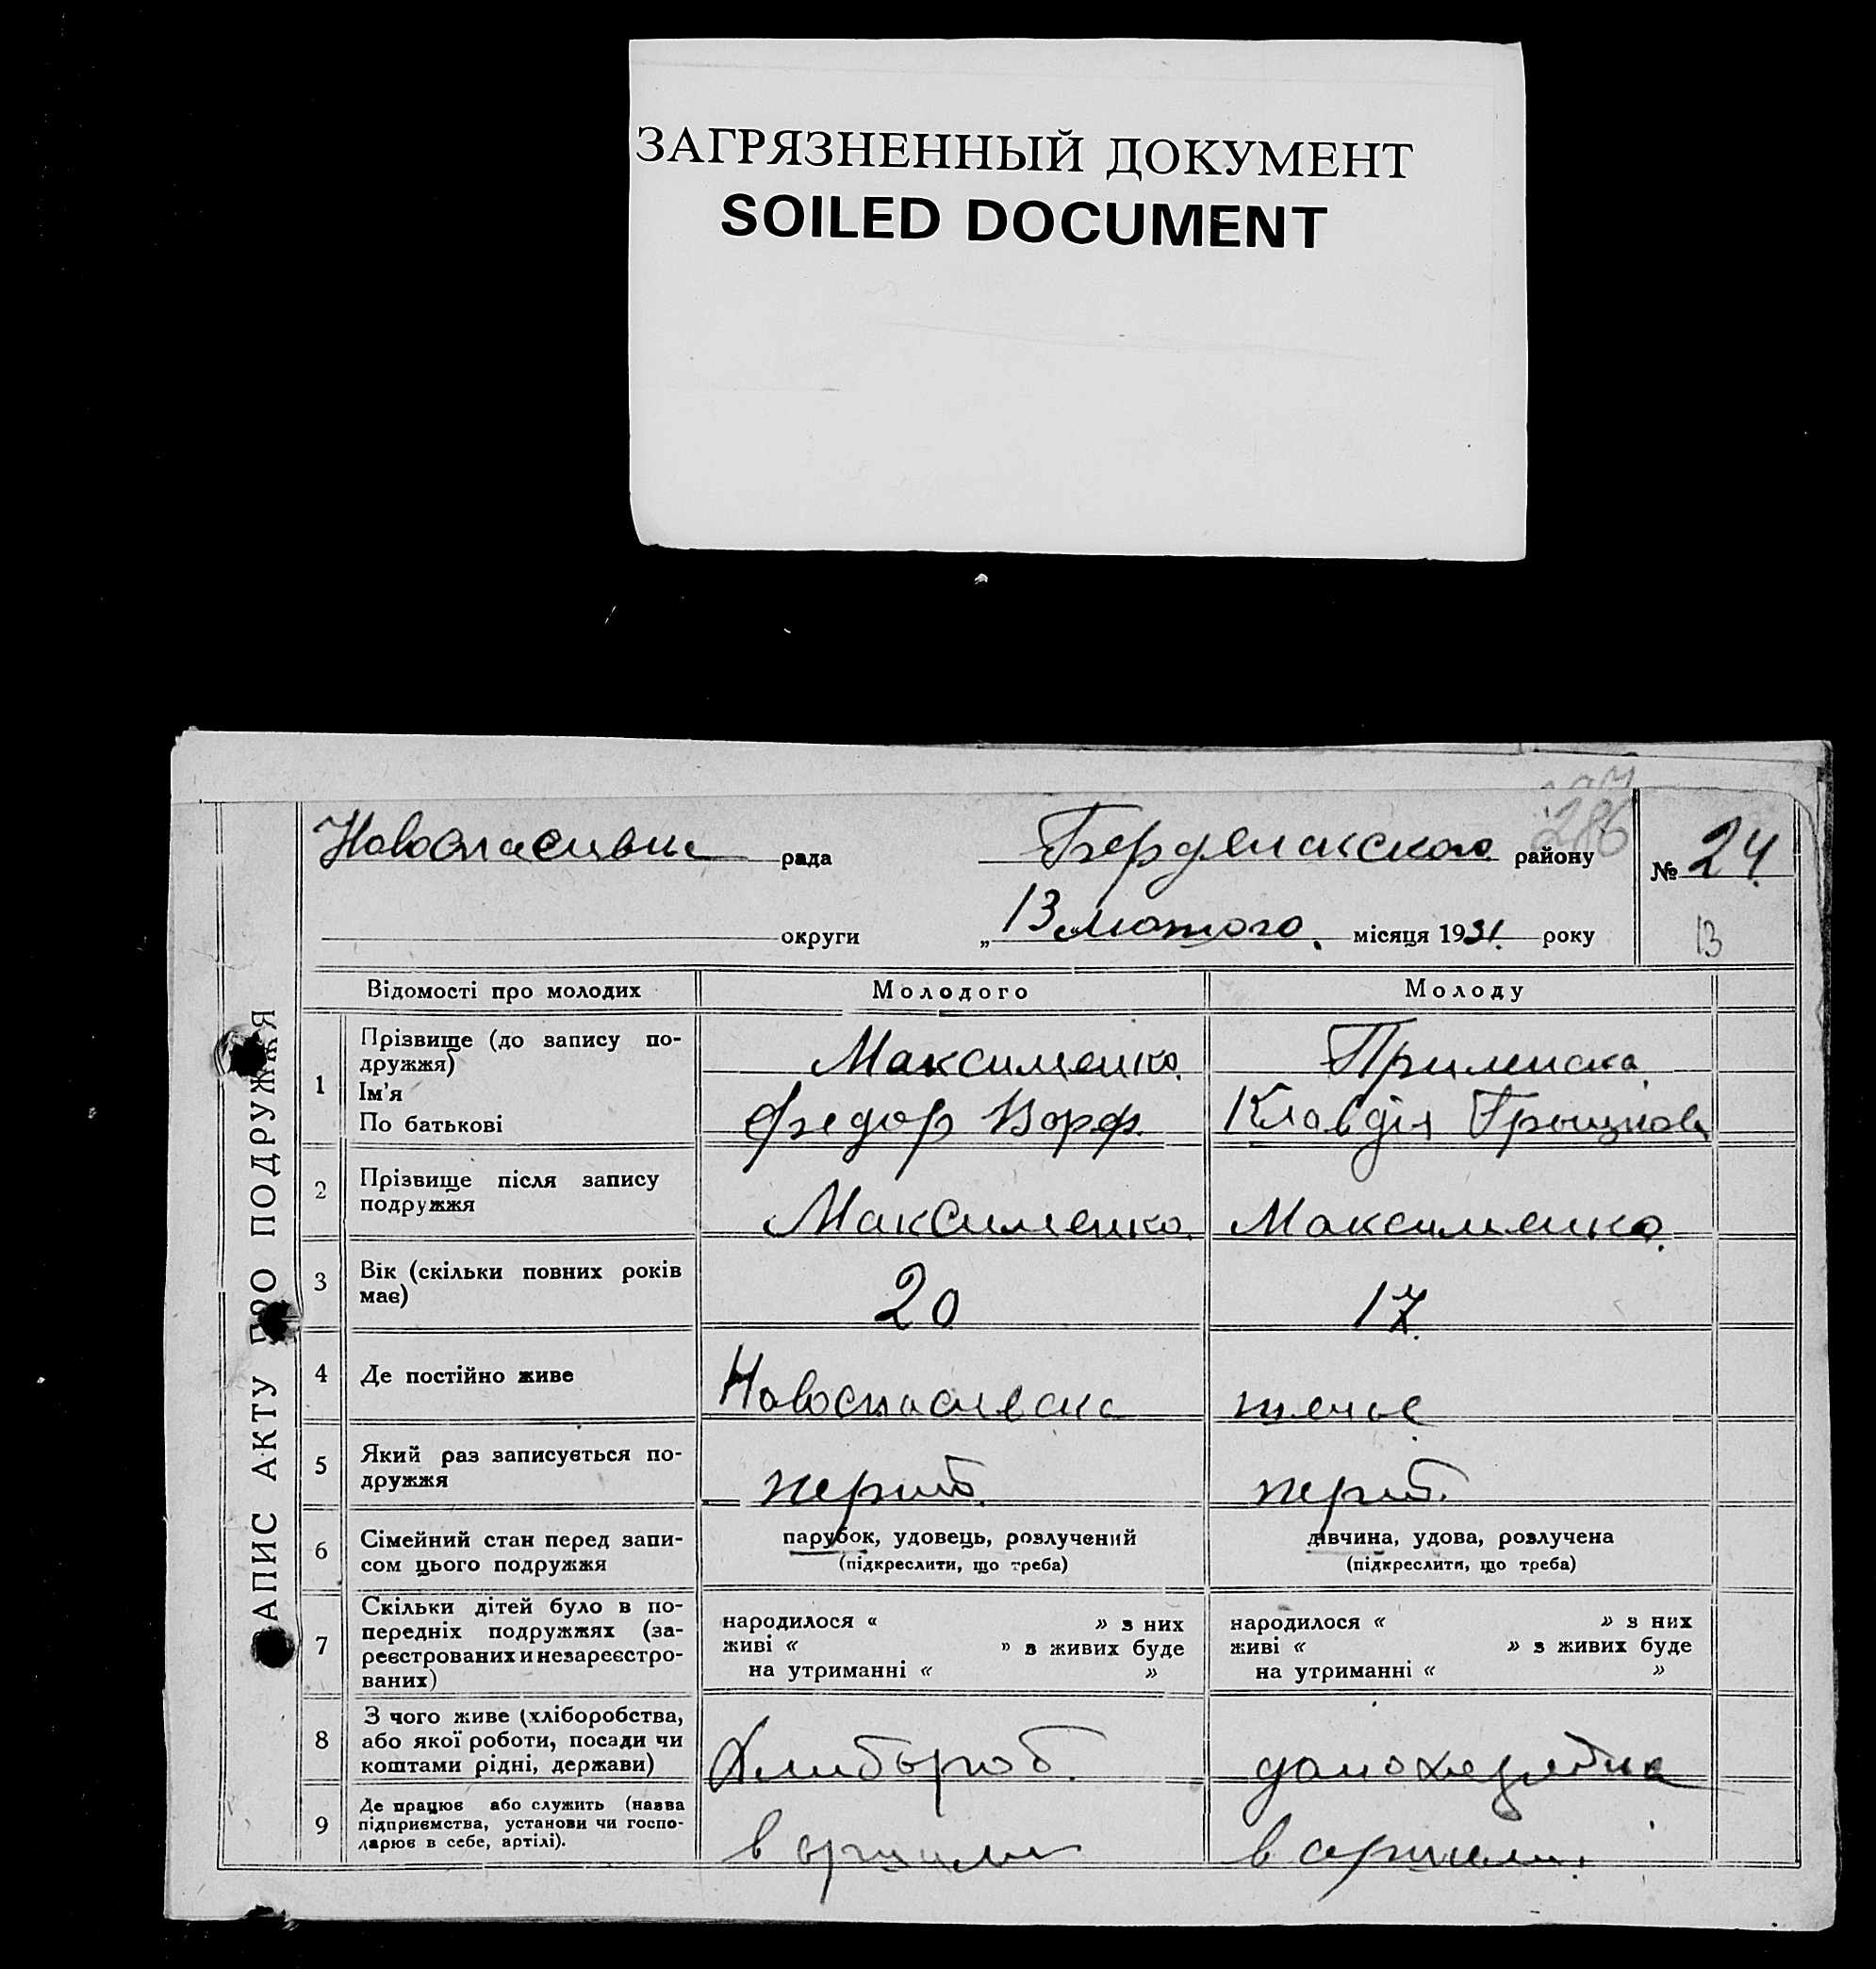 ЗАГРЯЗНЕННЫЙ ДОКУМЕНТ
SOILED DOCUMENT
286
рада Бердянского району № 24
округи „13 лютого. місяця 1931. року 13
ЗАПИС АКТУ ПРО ПОДРУЖЖЯ
Відомості про молодих Молодого Молоду
1 Прізвище (до запису по-
дружжя) Максименко.
Ім'я
По батькові Федор Клавдія
2 Прізвище після запису
подружжя Максименко. Максименко.
3 Вік (скільки повних років
має) 20 17.
4 Де постійно живе Новоспасивска
5 Який раз записується по-
дружжя
6 Сімейний стан перед запи-
сом цього подружжя
парубок, удовець, розлучений
(підкреслити, що треба)
дівчина, удова, розлучена
(підкреслити, що треба)
7 Скільки дітей було в по-
передніх подружжях (за-
реєстрованих и незареєстро-
ваних)
народилося « » з них
живі « » з живих буде
на утриманні « »
народилося « » з них
живі « » з живих буде
на утриманні « »
8 З чого живе (хліборобства,
або якої роботи, посади чи
коштами рідні, держави)
9 Де працює або служить (назва
підприємства, установи чи госпо-
дарює в себе, артілі).
в артили в артили.